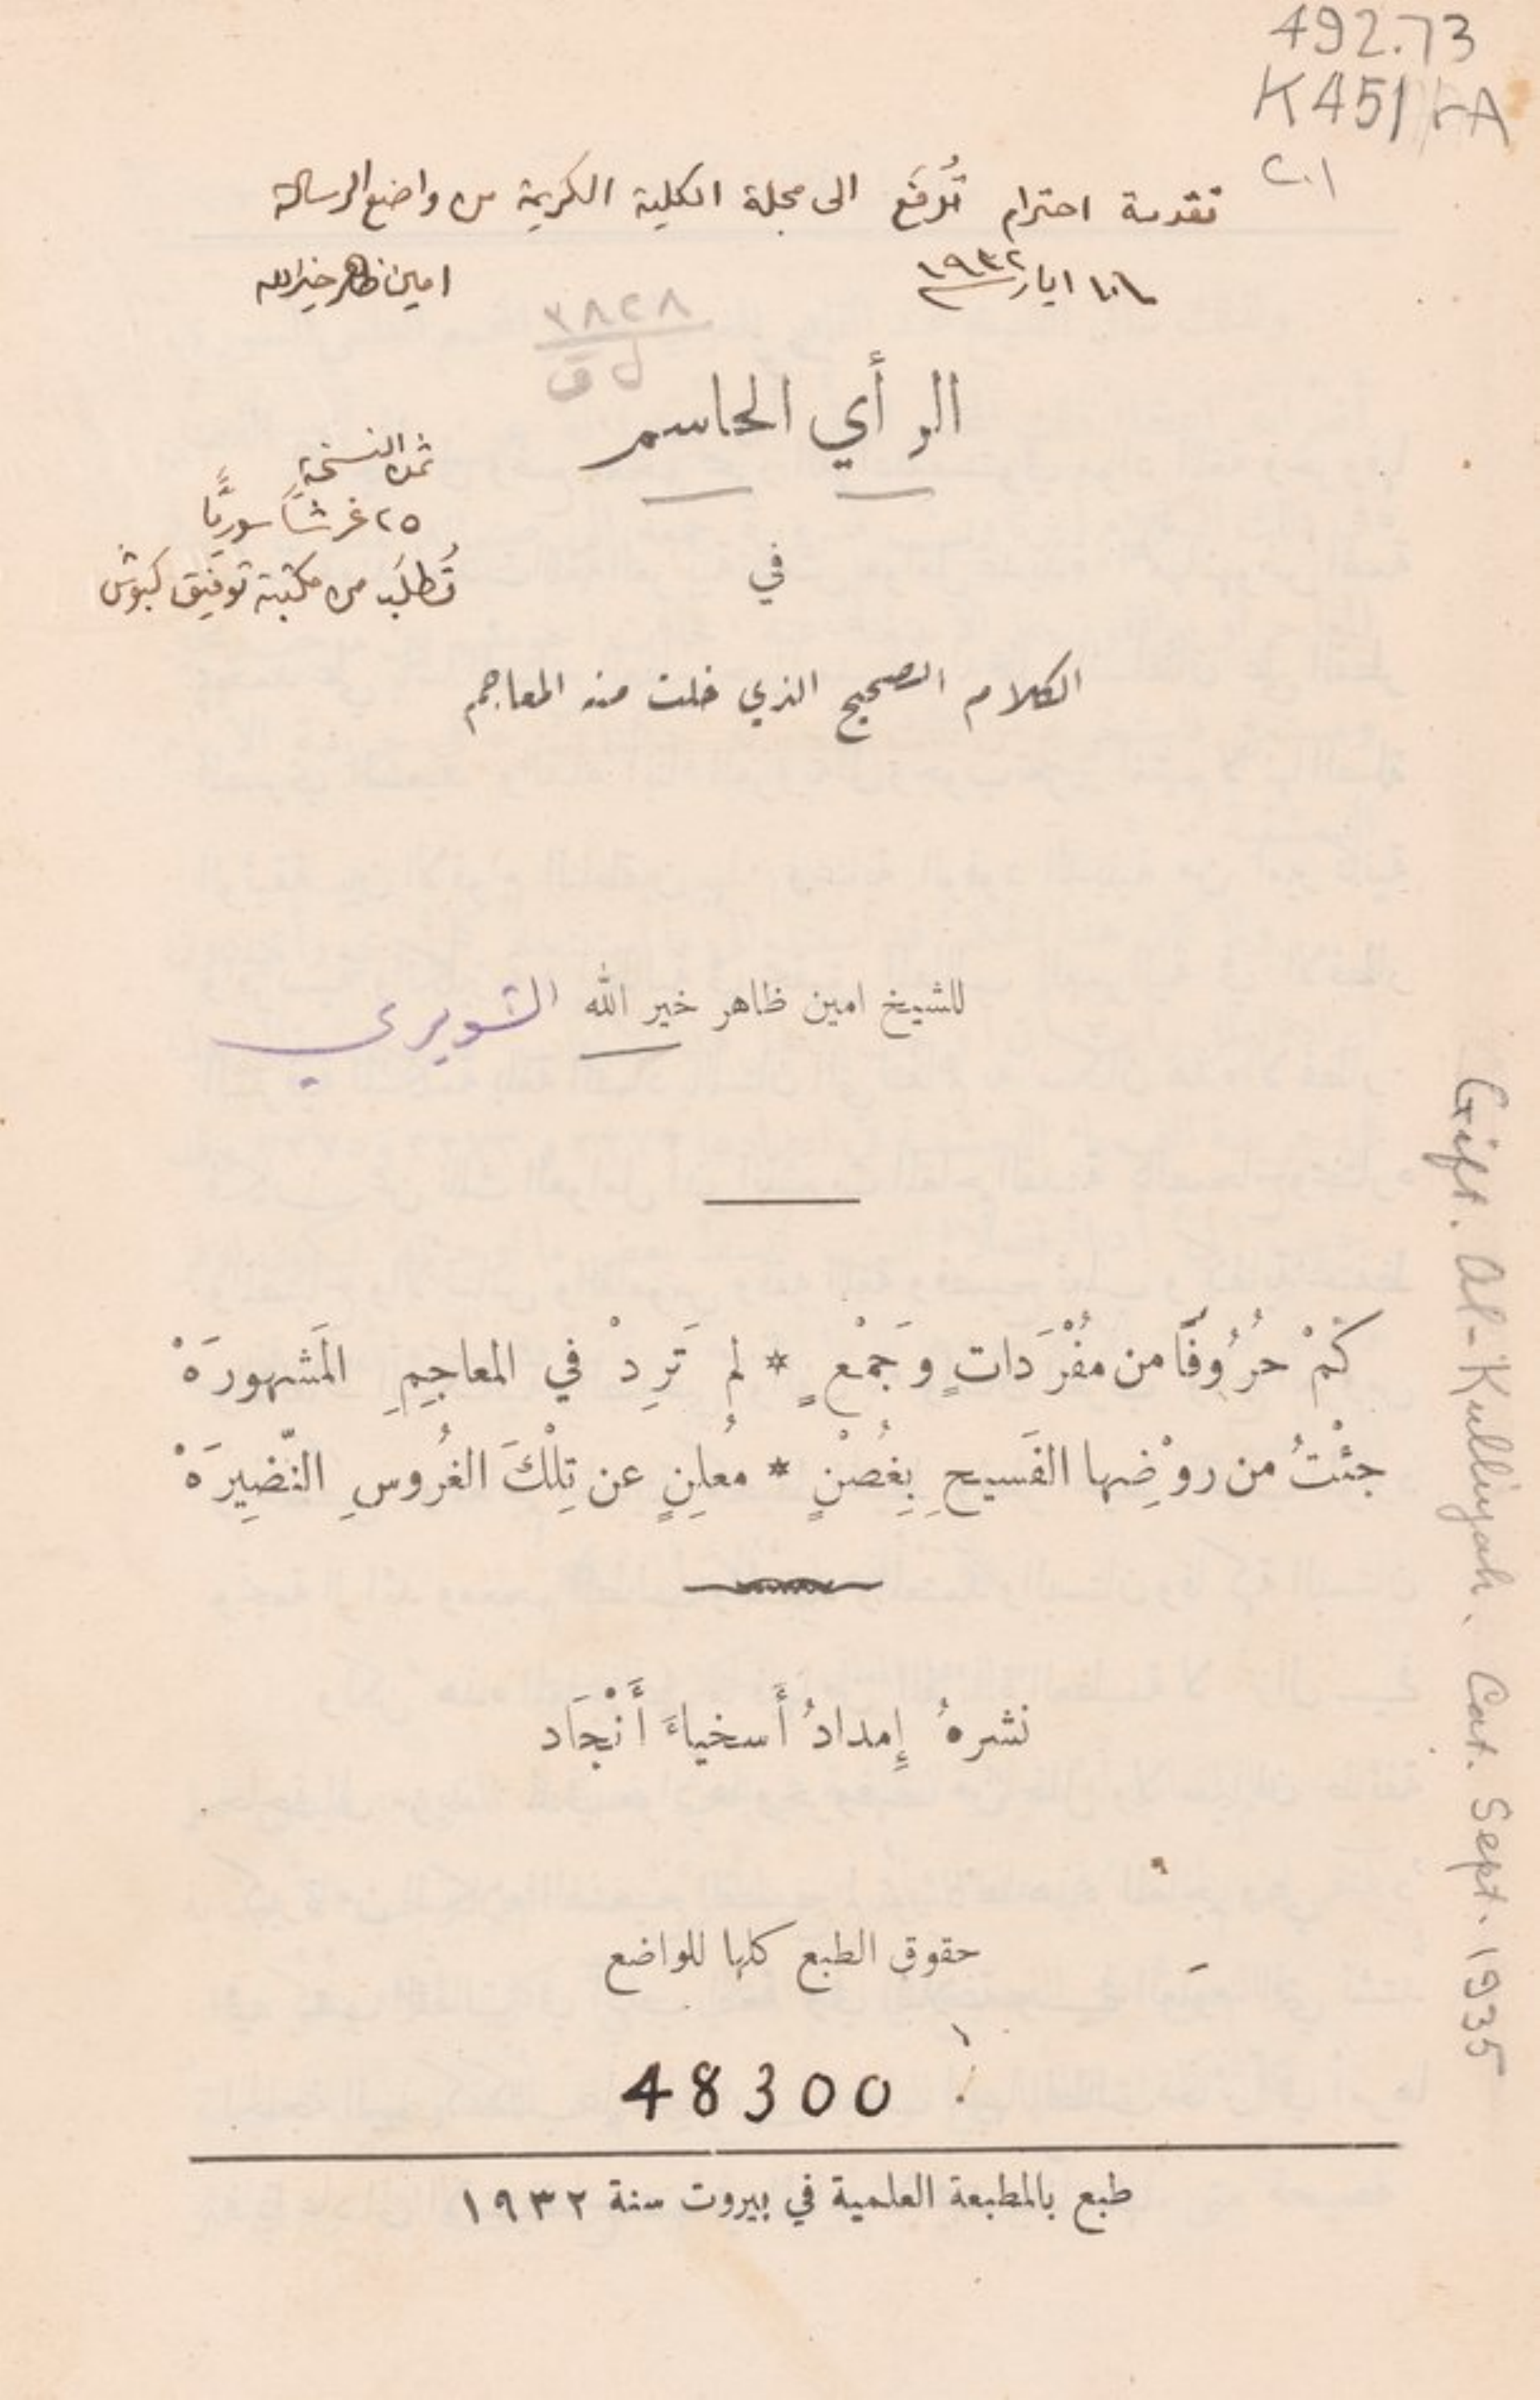 492.73
K451rA
c.1
تقدمة احترام تُرفَع الى مجلة الكلية الكريمة من واضع الرسالة
ايار ١٩٣٢
امين ظاهر خيرالله
الرأي الحاسم
ثمن النسخة
٢٥ غرشاً سوريًّا
تُطلَب من مكتبة توفيق كبوش
في
الكلام الصحيح الذي خلت منه المعاجم
للشيخ امين ظاهر خير الله الشويري
كَمْ حُرُوفًا من مُفْرَدَاتٍ وَجَمْعٍ * لم تَرِدْ في المعاجِيمِ المَشهورَهْ
جئْتُ من روْضِها الفَسيحِ بِغُصْنٍ * مُعلِنٍ عن تِلْكَ الغُروسِ النَّضِيرَهْ
نشرهُ إِمدادُ أَسخياءَ أَنْجَاد
حقوق الطبع كلها للواضع
48300
طبع بالمطبعة العلمية في بيروت سنة ١٩٣٢
Gift. Al-Kulliyah. Cat. Sept. 1935